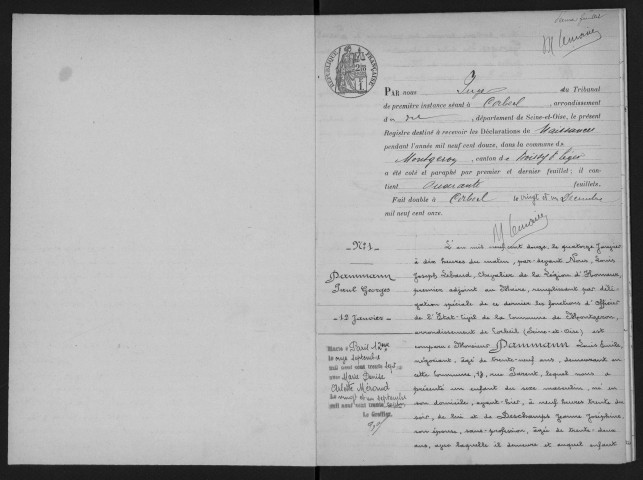 RÉPUBLIQUE FRANÇAISE
PAR nous Juge du Tribunal
de première instance séant à Corbeil, arrondissement
du dit, département de Seine-et-Oise, le présent
Registre destiné à recevoir les Déclarations de Naissances
pendant l'année mil neuf cent douze, dans la commune de
Montgeron, canton de Boissy St Léger
a été coté et paraphé par premier et dernier feuillet; il con-
tient quarante feuillets.
Fait double à Corbeil le vingt et un Décembre
mil neuf cent onze.
N° 1
Dammann
Paul Georges
12 Janvier
Marié à Paris 12eme
le onze septembre
mil neuf cent trente sept
avec Marie Denise
Arlette
Le vingt et un septembre
mil neuf cent trente sept
Le Greffier
L'an mil neuf cent douze, le quatorze Janvier
à dix heures du matin, par-devant Nous, Louis
Joseph Lebaud, Chevalier de la Légion d'Honneur,
premier adjoint au Maire, remplissant par délé-
gation spéciale de ce dernier les fonctions d'Officier
de l'Etat-Civil de la Commune de Montgeron,
arrondissement de Corbeil (Seine-et-Oise) est
comparu Monsieur Dammann Louis Emile,
négociant, âgé de trente-neuf ans, demeurant en
cette Commune, rue Parent, lequel nous a
présenté un enfant du sexe masculin, né en
son domicile, avant-hier, à neuf heures trente du
soir, de lui et de Deschamps Jeanne Joséphine,
son épouse, sans profession, âgée de trente-deux
ans, avec laquelle il demeure et auquel enfant